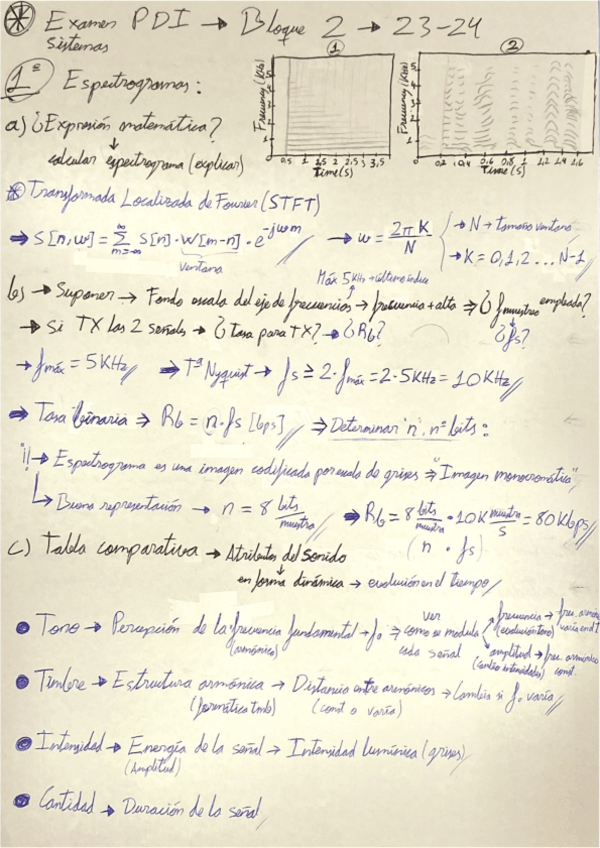 * Examen PDI → Bloque 2 → 23-24
sistemas
1º Espectrogramas:
1
2
Frecuency (KHz)
5
4
3
2
1
0.5 1 1.5 2 2.5 3 3.5
Time (s)
Frecuency (KHz)
5
4
3
2
1
0.2 0.4 0.6 0.8 1 1.2 1.4 1.6
Time (s)
a) ¿Expresión matemática?
↓
calcular espectrograma (explicar)
* Transformada Localizada de Fourier (STFT)
⇒ S[n,w] = Σ S[n]·W[m-n]·e^-jwm → w = 2πK/N → N → tamaño ventana
m=-∞ ∞
ventana
→ K = 0,1,2 ... N-1
Máx 5KHz → último índice
b) → Suponer → Fondo escala del eje de frecuencias → frecuencia + alta ⇒ ¿fmuestreo empleada?
→ Si TX las 2 señales → ¿Tasa para TX? → ¿Rb? ¿fs?
→ fmáx = 5KHz ⇒ Tª Nyquist → fs ≥ 2·fmáx = 2·5KHz = 10KHz
⇒ Tasa binaria ⇒ Rb = n·fs [bps] ⇒ Determinar "n", nº bits:
¡¡→ Espectrograma es una imagen codificada por escala de grises ⇒ "Imagen monocromática"
↳ Buena representación → n = 8 bits/muestra ⇒ Rb = 8 bits/muestra · 10K muestra/s = 80Kbps
(n · fs)
c) Tabla comparativa → Atributos del Sonido
↓
en forma dinámica → evolución en el tiempo
• Tono → Percepción de la frecuencia fundamental → fo ⇒ ver como se modula cada señal
(armónico)
frecuencia → frec. armónicos varía en t
(evolución tono)
amplitud → frec. armónicos const.
(cambio intensidades)
• Timbre → Estructura armónica → Distancia entre armónicos → Cambia si fo varía
(formática tmb) (const o varía)
• Intensidad → Energía de la señal → Intensidad lumínica (grises)
(Amplitud)
• Cantidad → Duración de la señal